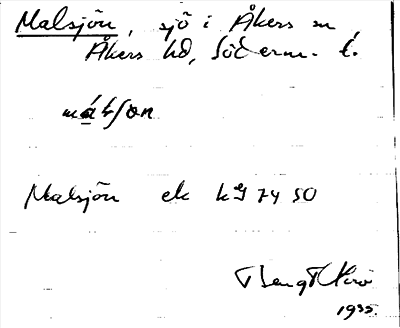 Malsjön, sjö i Åkers sn,
Åkers hd, Söderm. l.
Malsjön ek kg 74 SO
Bengt
1935.